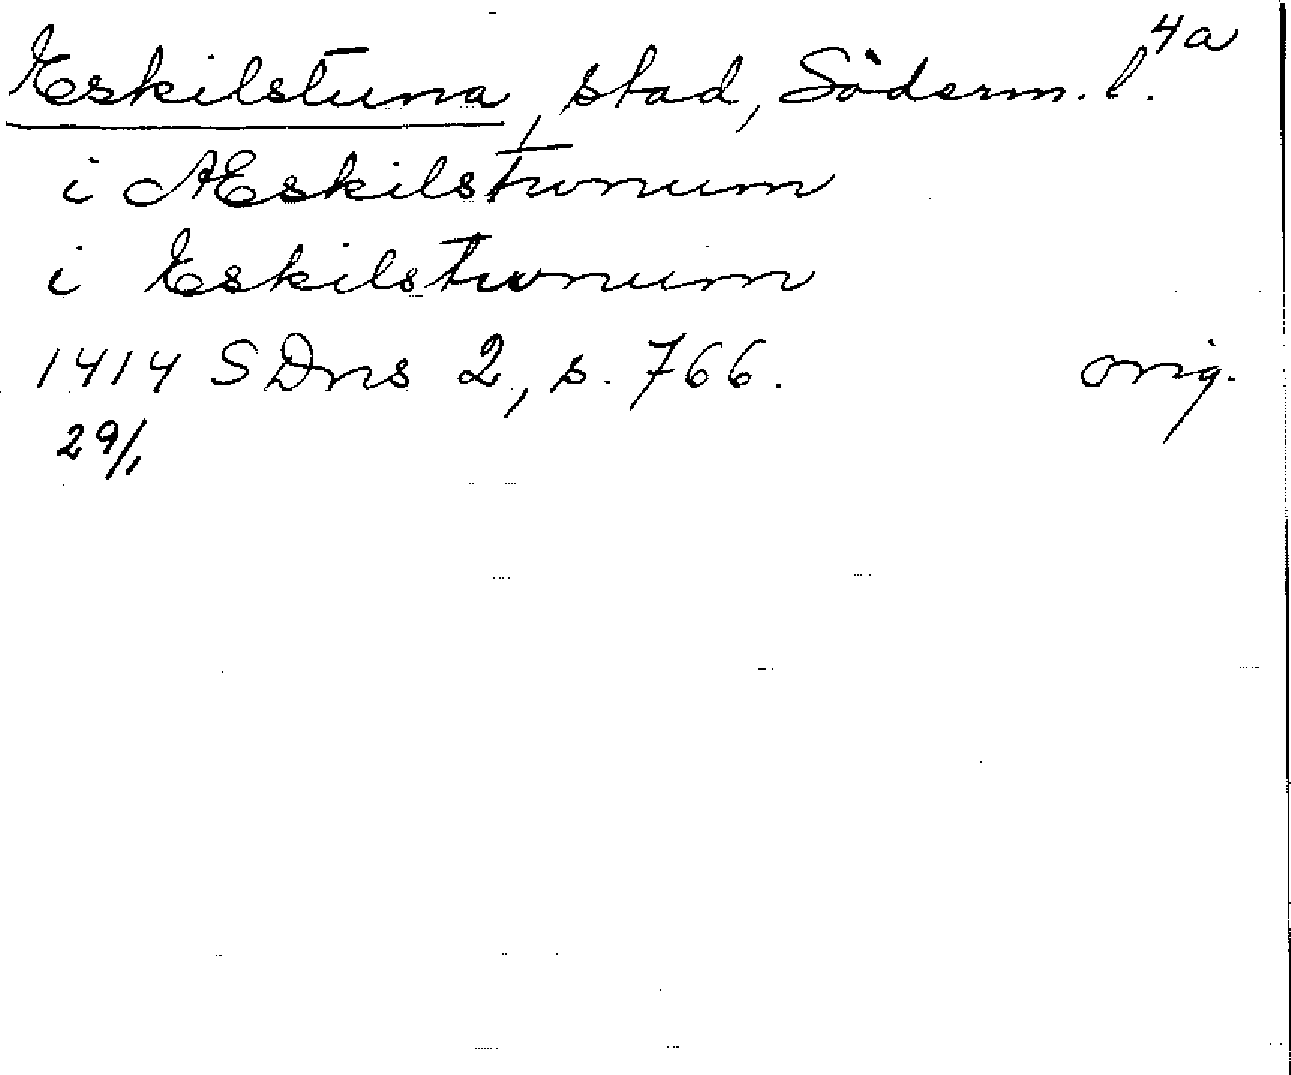 4a
Eskilstuna, stad, Söderm. l.
i Æskilstwnum
i Eskilstwnum
1414 SDns 2, s. 766. orig.
29/1